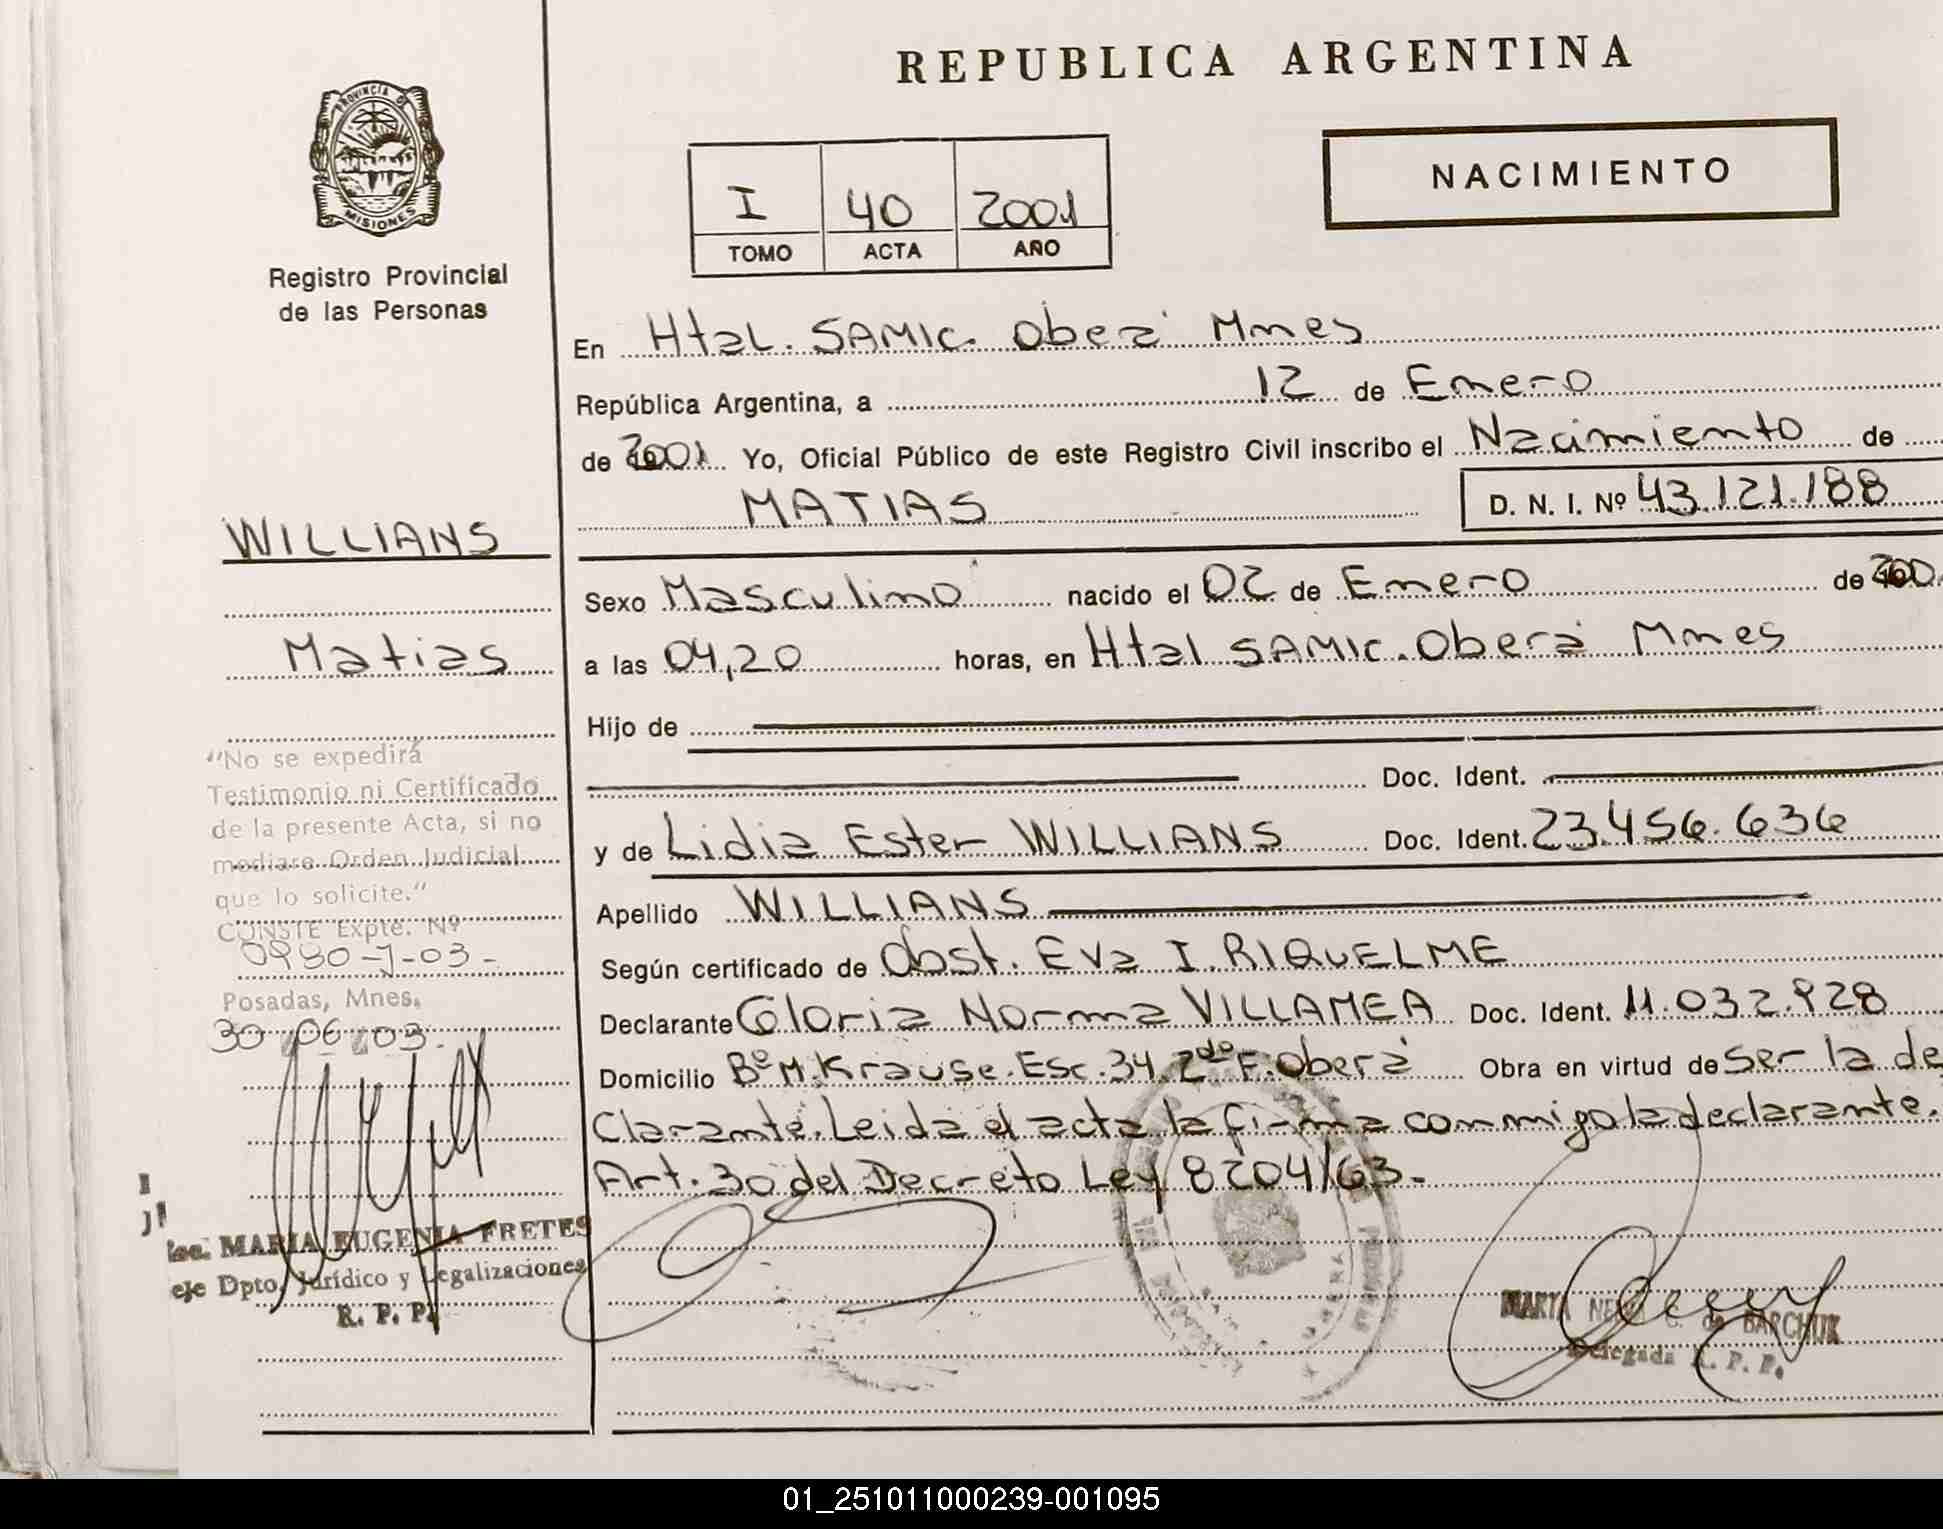 REPUBLICA ARGENTINA
PROVINCIA DE
MISIONES
Registro Provincial
de las Personas
NACIMIENTO
I 40 2001
TOMO ACTA AÑO
En Htal. SAMIC. Oberá Mnes
República Argentina, a 12 de Enero
de 2001 Yo, Oficial Público de este Registro Civil inscribo el Nacimiento de
MATIAS D. N. I. Nº 43.121.188
WILLIANS
Matias
Sexo Masculino nacido el 02 de Enero de 200
a las 04,20 horas, en Htal SAMIC. Oberá Mnes
Hijo de
Doc. Ident.
y de Lidia Ester WILLIANS Doc. Ident. 23.456.636
Apellido WILLIANS
Según certificado de Obst. Eva I. RIQUELME
Declarante Gloria Norma VILLAMEA Doc. Ident. 11.032.928
Domicilio Bº M. Krause. Esc. 34. 2do F. Oberá Obra en virtud de ser la de
clarante. Leida el acta la firma conmigo la declarante.
Art. 30 del Decreto Ley 8204/63-
"No se expedirá
Testimonio ni Certificado
de la presente Acta, si no
mediare Orden Judicial
que lo solicite."
CONSTE Expte. Nº
0980-J-03-
Posadas, Mnes.
30 06 03.
MARIA EUGENIA FRETES
Dpto. Jurídico y Legalizaciones
R. P. P.
MARTA C. de BARCHUK
Delegada R. P. P.
01_251011000239-001095